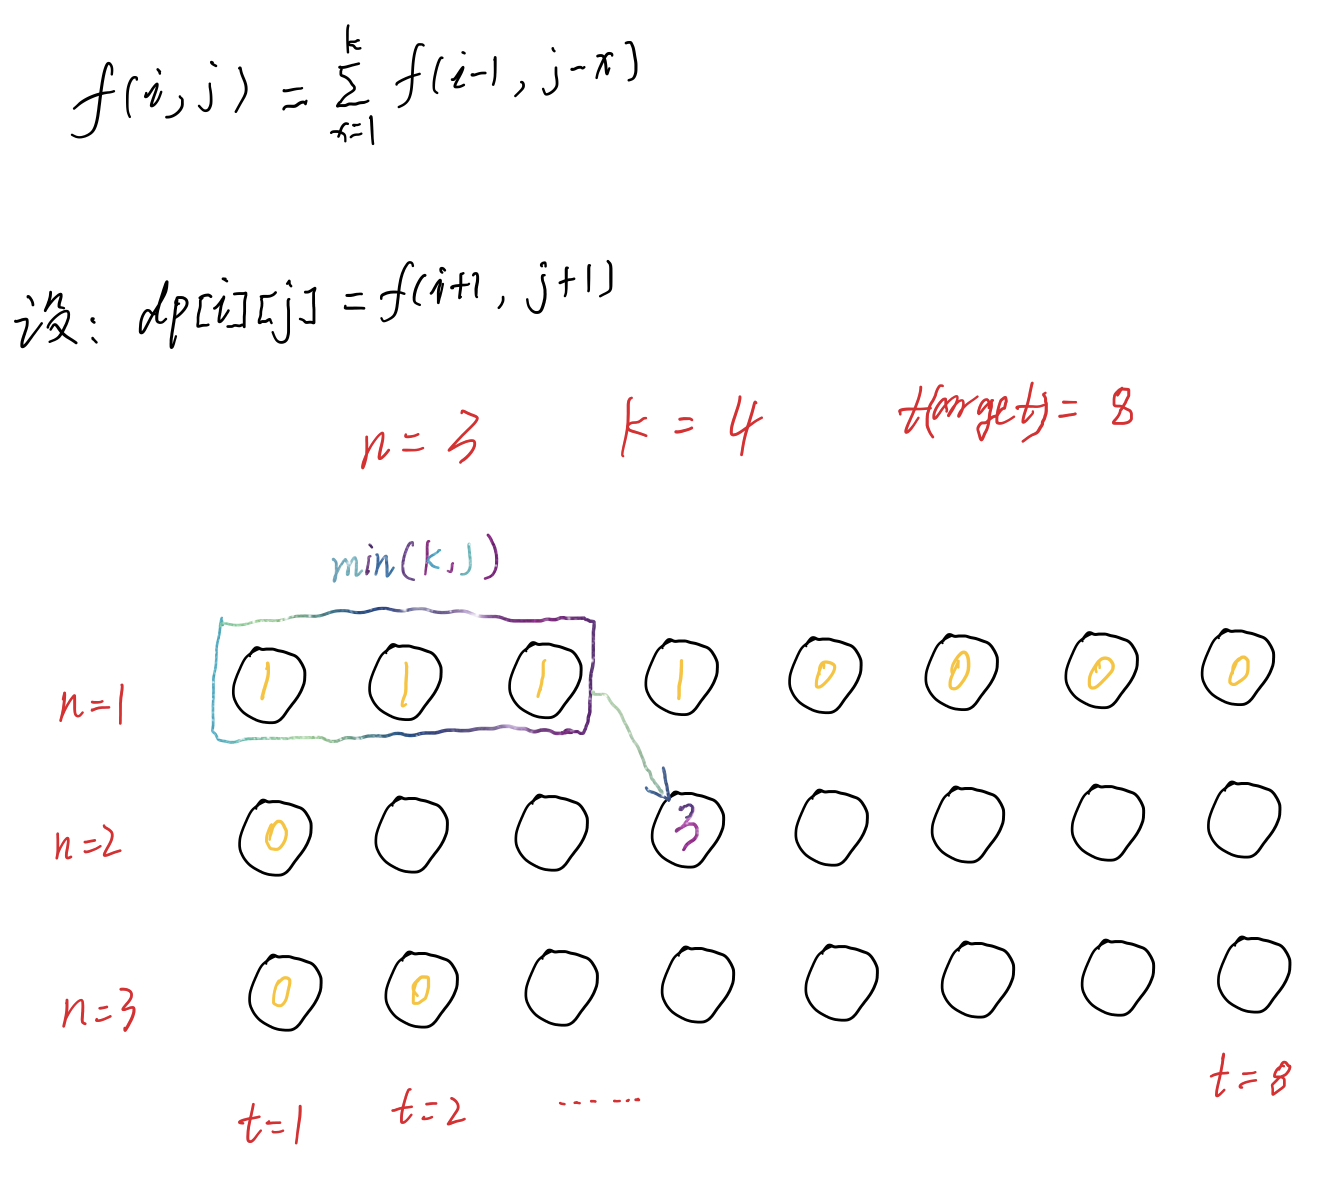 f(i,j) = ∑_{x=1}^{k} f(i-1, j-x)
设: dp[i][j] = f(i+1, j+1)
n=3 k=4 t(arget)=8
min(k,j)
n=1 1 1 1 1 0 0 0 0
n=2 0 3
n=3 0 0
t=1 t=2 ...... t=8